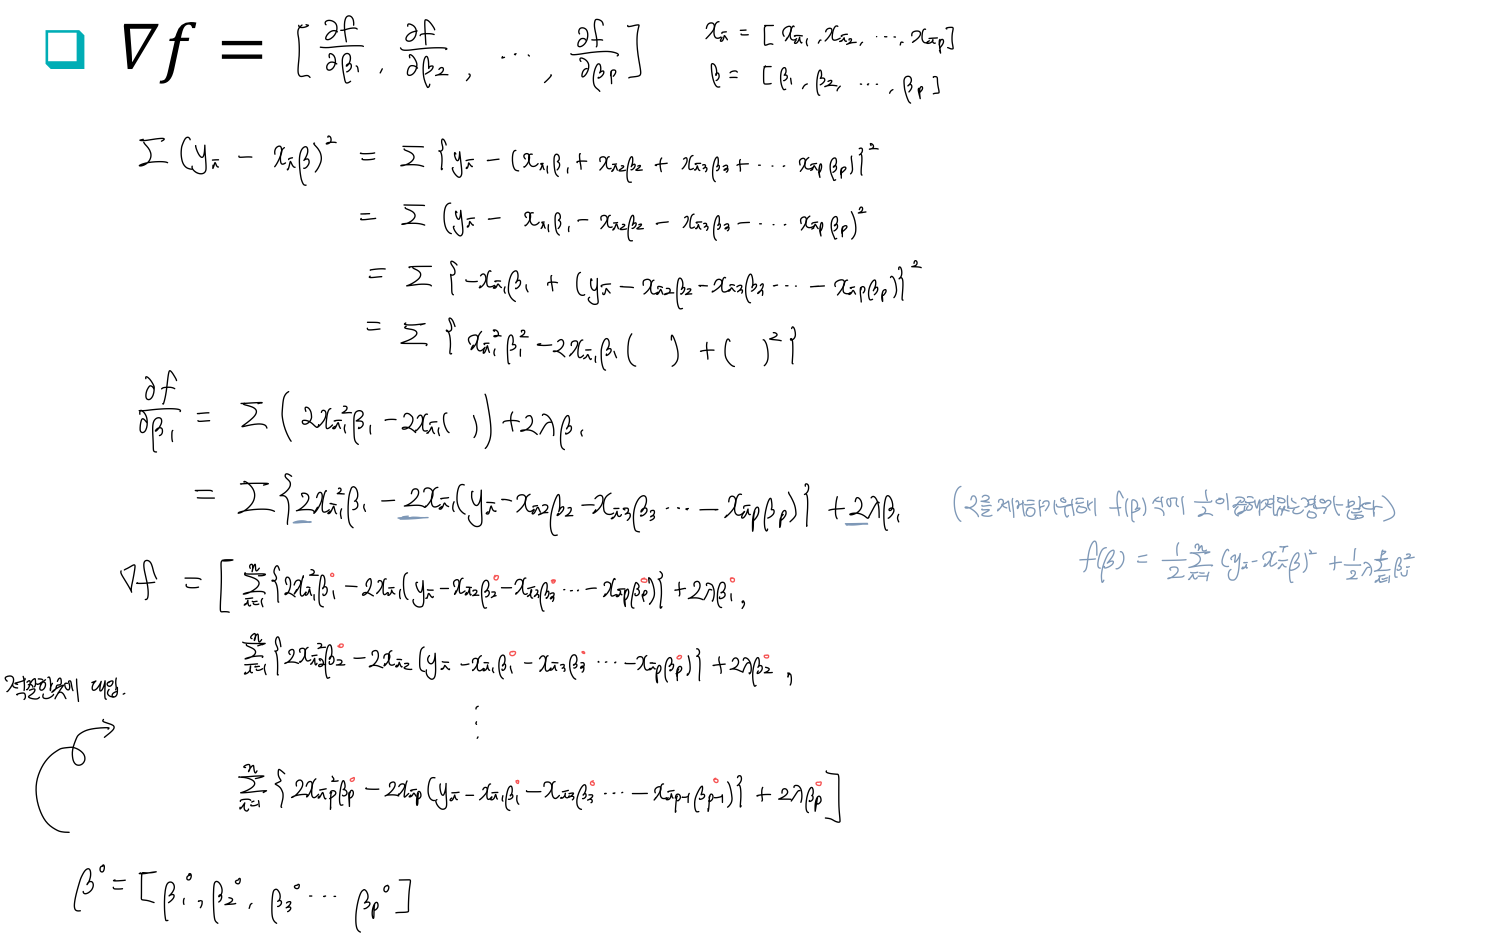 ❑ ∇f = [ ∂f/∂β₁ , ∂f/∂β₂ , ⋯ , ∂f/∂βₚ ]
xᵢ = [ xᵢ₁, xᵢ₂, ⋯, xᵢₚ ]
β = [ β₁, β₂, ⋯, βₚ ]
Σ (yᵢ - xᵢβ)² = Σ {yᵢ - (xᵢ₁β₁ + xᵢ₂β₂ + xᵢ₃β₃ + ⋯ xᵢₚβₚ)}²
= Σ (yᵢ - xᵢ₁β₁ - xᵢ₂β₂ - xᵢ₃β₃ - ⋯ xᵢₚβₚ)²
= Σ {-xᵢ₁β₁ + (yᵢ - xᵢ₂β₂ - xᵢ₃β₃ ⋯ - xᵢₚβₚ)}²
= Σ { xᵢ₁²β₁² - 2xᵢ₁β₁ ( ) + ( )² }
∂f/∂β₁ = Σ ( 2xᵢ₁²β₁ - 2xᵢ₁( ) ) + 2λβ₁
= Σ {2xᵢ₁²β₁ - 2xᵢ₁(yᵢ - xᵢ₂β₂ - xᵢ₃β₃ ⋯ - xᵢₚβₚ)} + 2λβ₁
(2를 제거하기위해 f(β) 식에 1/2 이 곱해져있는경우가 많다)
f(β) = 1/2 Σᵢ₌₁ⁿ (yᵢ - xᵢᵀβ)² + 1/2 λ Σⱼ₌₁ᵖ βⱼ²
∇f = [ Σᵢ₌₁ⁿ {2xᵢ₁²β₁⁰ - 2xᵢ₁(yᵢ - xᵢ₂β₂⁰ - xᵢ₃β₃⁰ ⋯ - xᵢₚβₚ⁰)} + 2λβ₁⁰,
Σᵢ₌₁ⁿ {2xᵢ₂²β₂⁰ - 2xᵢ₂(yᵢ - xᵢ₁β₁⁰ - xᵢ₃β₃⁰ ⋯ - xᵢₚβₚ⁰)} + 2λβ₂⁰,
적절한곳에 대입.
⋮
Σᵢ₌₁ⁿ {2xᵢₚ²βₚ⁰ - 2xᵢₚ(yᵢ - xᵢ₁β₁⁰ - xᵢ₃β₃⁰ ⋯ - xᵢₚ₋₁βₚ₋₁⁰)} + 2λβₚ⁰ ]
β⁰ = [ β₁⁰, β₂⁰, β₃⁰ ⋯ βₚ⁰ ]